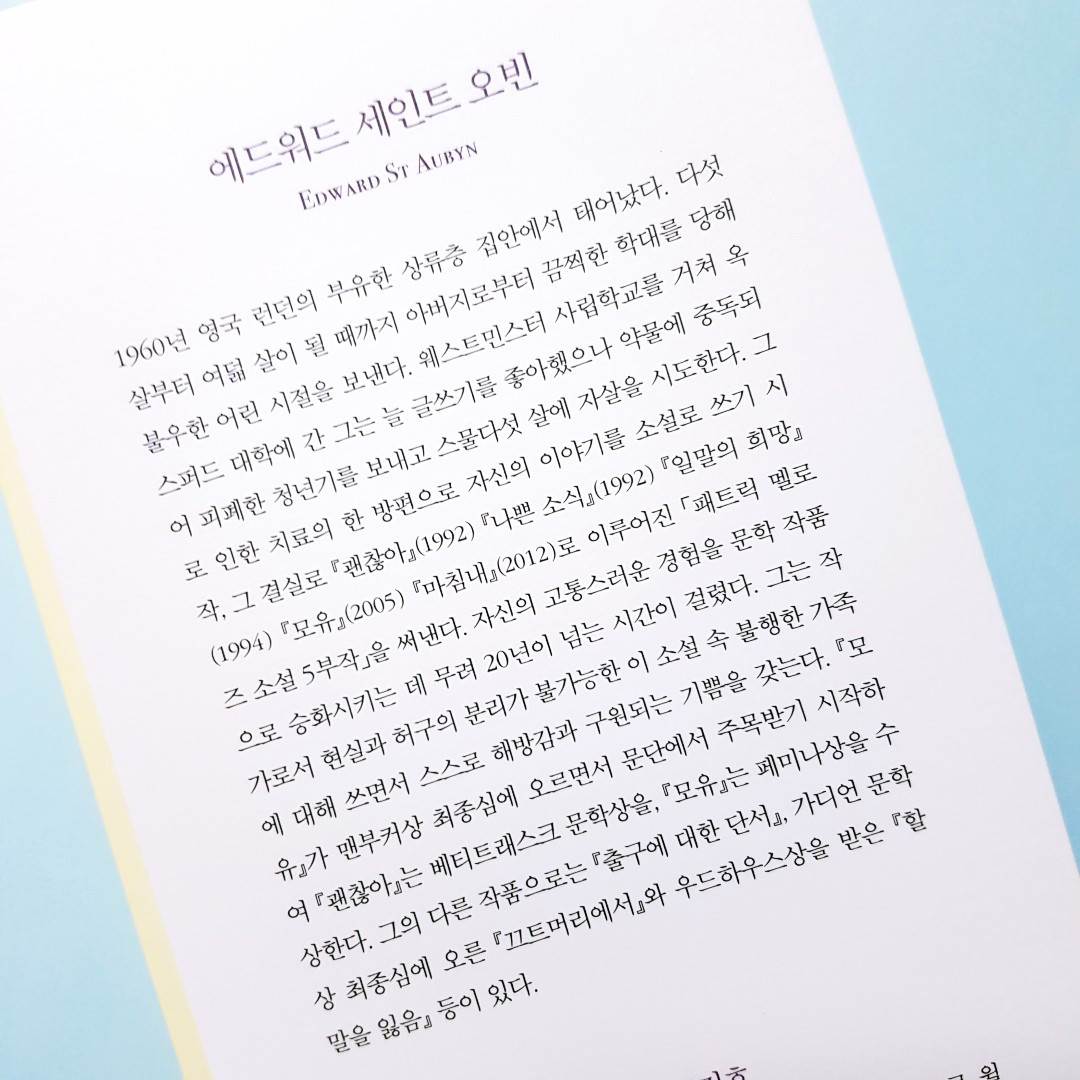 에드워드 세인트 오빈
EDWARD ST AUBYN
1960년 영국 런던의 부유한 상류층 집안에서 태어났다. 다섯
살부터 여덟 살이 될 때까지 아버지로부터 끔찍한 학대를 당해
불우한 어린 시절을 보낸다. 웨스트민스터 사립학교를 거쳐 옥
스퍼드 대학에 간 그는 늘 글쓰기를 좋아했으나 약물에 중독되
어 피폐한 청년기를 보내고 스물다섯 살에 자살을 시도한다. 그
로 인한 치료의 한 방편으로 자신의 이야기를 소설로 쓰기 시
작, 그 결실로 『괜찮아』(1992) 『나쁜 소식』(1992) 『일말의 희망』
(1994) 『모유』(2005) 『마침내』(2012)로 이루어진 「패트릭 멜로
즈 소설 5부작」을 써낸다. 자신의 고통스러운 경험을 문학 작품
으로 승화시키는 데 무려 20년이 넘는 시간이 걸렸다. 그는 작
가로서 현실과 허구의 분리가 불가능한 이 소설 속 불행한 가족
에 대해 쓰면서 스스로 해방감과 구원되는 기쁨을 갖는다. 『모
유』가 맨부커상 최종심에 오르면서 문단에서 주목받기 시작하
여 『괜찮아』는 베티트래스크 문학상을, 『모유』는 페미나상을 수
상한다. 그의 다른 작품으로는 『출구에 대한 단서』, 가디언 문학
상 최종심에 오른 『끄트머리에서』와 우드하우스상을 받은 『할
말을 잃음』 등이 있다.